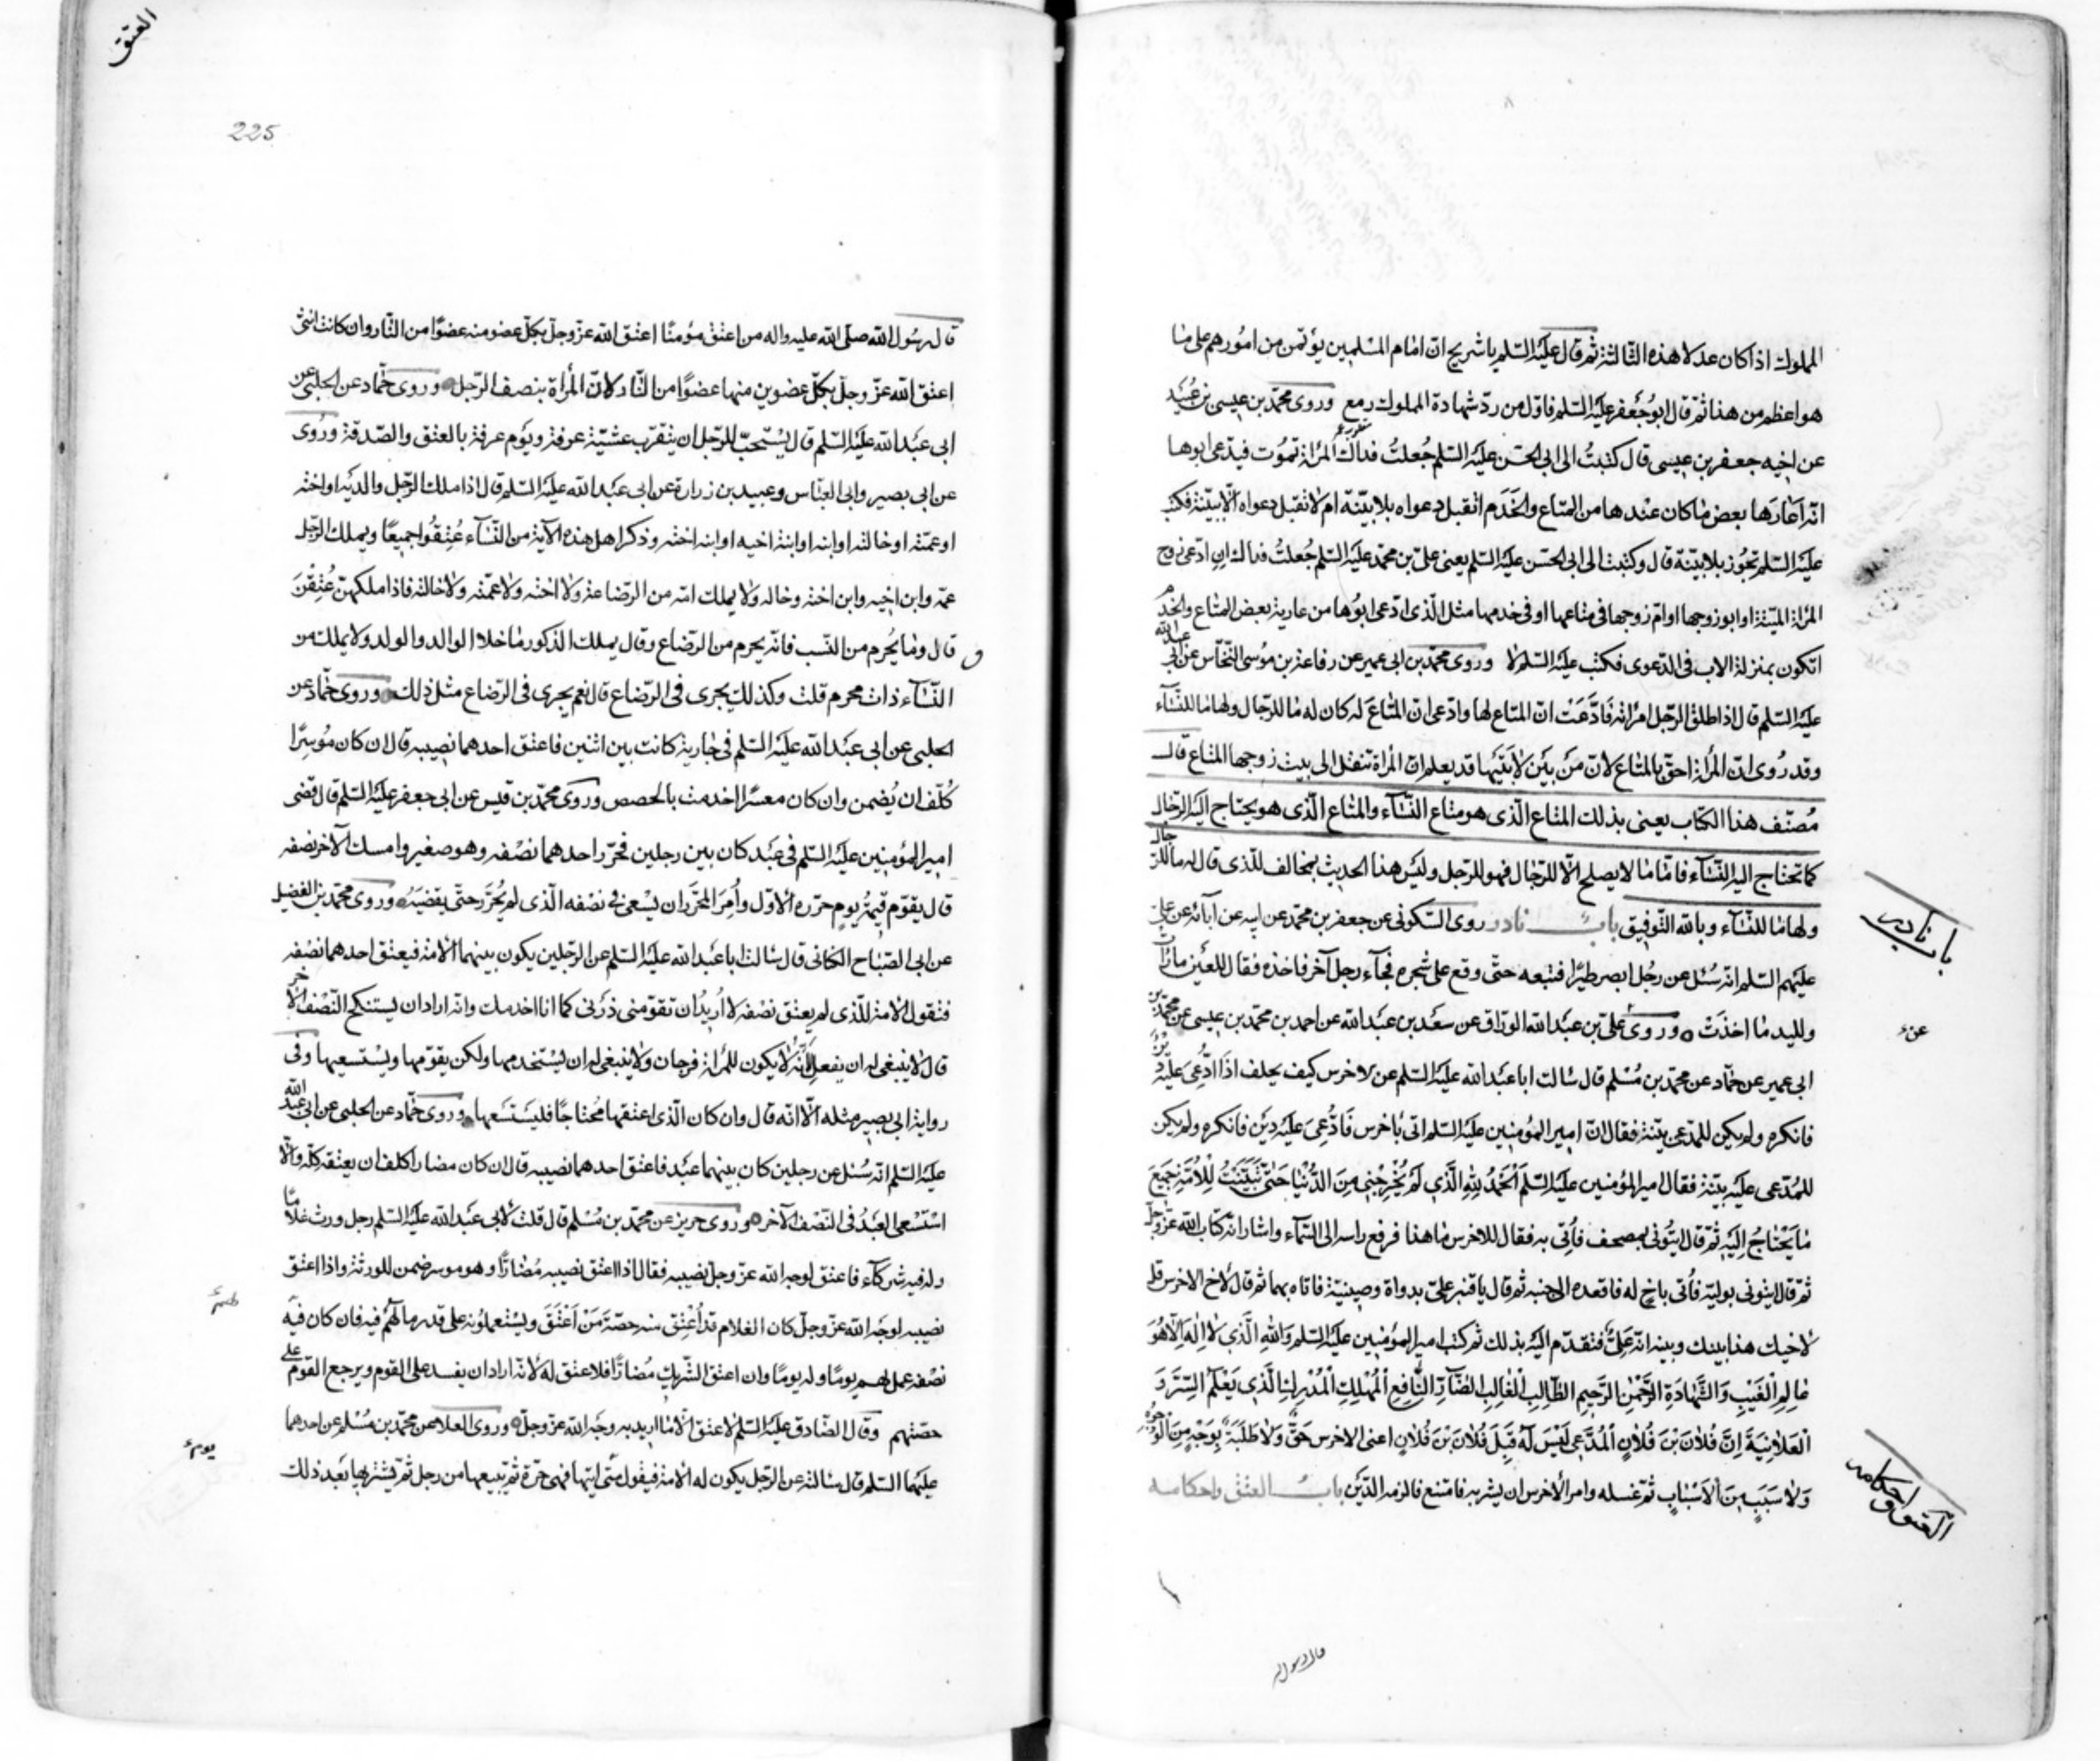 المملوك اذا كان عدلا هذه الثالثة ثم قال عليه السلم يا شريح ان امام المسلمين يؤتمن من امورهم على ما
هو اعظم من هذا ثم قال ابو جعفر عليه السلم فاوّل من ردّ شهادة المملوك رمع وروى محمّد بن عيسى بن عبيد
عن اخيه جعفر بن عيسى قال كتبت الى ابى الحسن عليه السلم جُعلتُ فداك المرأة تموت فيدّعى ابوها
انّه اعارها بعض ما كان عندها من المتاع والخدم اتقبل دعواه بلا بيّنة ام لا تقبل دعواه الّا ببيّنة فكتب
عليه السلم تجوز بلا بيّنة قال وكتبت الى ابى الحسن عليه السلم يعنى علىّ بن محمّد عليه السلم جُعلتُ فداك ان ادّعى زوج
المرأة الميّتة او ابو زوجها او امّ زوجها فى متاعها او فى خدمها مثل الّذى ادّعى ابوها من عارية بعض المتاع والخدم
اتكون بمنزلة الاب فى الدّعوى فكتب عليه السلم لا وروى محمّد بن ابى عمير عن رفاعة بن موسى النّخّاس عن ابى عبد الله
عليه السلم قال اذا طلق الرّجل امراته فادّعت انّ المتاع لها وادّعى انّ المتاع له كان له ما للرّجال ولها ما للنّسآء
وقد رُوى انّ المرأة احقّ بالمتاع لانّ من بين لابتيها قد يعلم ان المرأة تنقل الى بيت زوجها المتاع قال
مُصنّف هذا الكتاب يعنى بذلك المتاع الّذى هو متاع النّسآء والمتاع الّذى هو يحتاج اليه الرّجال
كما تحتاج اليه النّسآء فامّا ما لا يصلح الّا للرّجال فهو للرّجل وليس هذا الحديث بمخالف للّذى قال له ما للرّجال
ولها ما للنّسآء وبالله التّوفيق باب نادر روى السّكونى عن جعفر بن محمّد عن ابيه عن آبآئه عن علىّ
عليهم السلم انّه سُئل عن رجُل ابصر طيرًا فتبعه حتّى وقع على شجره فجآء رجل آخر فاخذه فقال للعين ما رأت
ولليد ما اخذت وروى علىّ بن عبد الله الورّاق عن سعد بن عبد الله عن احمد بن محمّد بن عيسى عن محمّد بن
ابى عمير عن حمّاد عن محمّد بن مُسْلم قال سالت ابا عبد الله عليه السلم عن لاخرس كيف يحلف اذا ادّعى عليه دين
فانكره ولم يكن للمدّعى بيّنة فقال انّ امير المؤمنين عليه السلم اتى باخرس فادّعى عليه دين فانكره ولم يكن
للمُدّعى عليه بيّنة فقال امير المؤمنين عليه السلم اَلحَمدُ لِلّهِ الَّذى لَم يُخْرِجنى مِنَ الدُّنْيا حَتّى تَبَيَّنْتُ لِلْاُمَّةِ جَميعَ
ما يَحْتاجُ اِلَيْهِ ثمّ قال ايتُونى بمصحف فأُتِى به فقال للاخرس ما هذا فرفع راسه الى السّمآء واشار انّه كتاب الله عزّ وجلّ
ثمّ قال ايتونى بوليّه فأُتى باخٍ له فاقعده الى جنبه ثم قال يا قنبر علىّ بدواة وصينيّة فاتاه بهما ثم قال لاخ الاخرس قل
لاخيك هذا بينك وبينه انّه علىّ فتقدّم اليه بذلك ثم كتب امير المؤمنين عليه السلم وَاللهِ الَّذى لا اِلهَ اِلّا هُوَ
عالِمِ الْغَيْبِ وَالشَّهادَةِ الرَّحْمنِ الرَّحيمِ الطّالِبِ الْغالِبِ الضّآرِّ النّافِعِ الْمُهْلِكِ الْمُدْرِكِ الَّذى يَعْلَمُ السِّرَّ وَ
الْعَلانِيَةَ اِنَّ فُلانَ بْنَ فُلانٍ الْمُدَّعى لَيْسَ لَهُ قِبَلَ فُلانَ بْنَ فُلانٍ اعنى الاخرس حَقٌّ وَلا طَلِبَةٌ بِوَجْهٍ مِنَ الْوُجُوهِ
وَلا سَبَبٍ مِنَ الْاَسْبابِ ثمّ غسله وامر الأخرس ان يشربه فامتنع فالزمه الدّين باب العتق واحكامه
باب نادر
العتق و احكامه
قال رسول الله
العتق
225
قال رسُول الله صلّى الله عليه واله من اعتق مؤمنًا اعتق الله عزّ وجلّ بكلّ عضو منه عضوًا من النّار وان كانت انثى
اعتق الله عزّ وجلّ بكلّ عضوين منها عضوًا من النّار لانّ المرأة بنصف الرّجل وروى حمّاد عن الحلبى عن
ابى عبد الله عليه السلم قال يُسْتحبّ للرّجل ان يتقرّب عشيّة عرفة ويوم عرفة بالعتق والصّدقة ورُوى
عن ابى بصير وابى العبّاس وعبيد بن زرارة عن ابى عبد الله عليه السلم قال اذا ملك الرّجل والديه او اخته
او عمّته او خالته او ابنه او ابنة اخيه او ابنه اخته وذكر اهل هذه الآية من النّسآء عُتِقُوا جميعًا ويملك الرّجل
عمّه وابن اخيه وابن اخته وخاله ولا يملك امّه من الرّضاعة ولا اخته ولا عمّته ولا خالته فاذا ملكهنّ عُتِقْنَ
قال وما يُحرم من النّسب فانّه يحرم من الرّضاع وقال يملك الذكور ما خلا الوالد والولد ولا يملك من
النّسآء ذات محرم قلت وكذلك يجرى فى الرّضاع قال نعم يجرى فى الرّضاع مثل ذلك وروى حمّاد عن
الحلبى عن ابى عبد الله عليه السلم فى جارية كانت بين اثنين فاعتق احدهما نصيبه قال ان كان مُوسِرًا
كُلّف ان يُضمن وان كان معسرًا اخدمت بالحصص وروى محمّد بن قيس عن ابى جعفر عليه السلم قال قضى
امير المؤمنين عليه السلم فى عبد كان بين رجلين فحرّر احدهما نصْفه وهو صغير وامسك الآخر نصفه
قال يقوّم قيمةُ يوم حرّره الأوّل واُمِرَ المحرَّر ان يسْعى فى نصْفه الّذى لم يُحرَّر حتّى يقضيَهُ وروى محمّد بن الفضيل
عن ابى الصّباح الكنانى قال سالت ابا عبد الله عليه السلم عن الرّجلين يكون بينهما الأمة فيعتق احدهما نصْفه
فتقول الأمة للّذى لم يعتق نصْفه لا اُريدُ ان تقوّمنى ذرنى كما انا اخدمك وانّه اراد ان يستنكح النّصْف الآخر
قال لا ينبغى له ان يفعل لانّه لا يكون للمرأة فرجان ولا ينبغى له ان يسْتخدمها ولكن يقوّمها ويسْتسعيها وفى
رواية ابى بصير مثله الّا انّه قال وان كان الّذى اعتقها مُحتاجًا فليستسعها وروى حمّاد عن الحلبى عن ابى عبد الله
عليه السلم انّه سُئل عن رجلين كان بينهما عبد فاعتق احدهما نصيبه قال ان كان مضارا كلف ان يعتقه كلّه والّا
اسْتسْعى العَبْدُ فى النّصْف الآخر وروى حريز عن محمّد بن مُسْلم قال قلت لأبى عبد الله عليه السلم رجل ورث غلامًا
وله فيه شركآء فاعتق لوجه الله عزّ وجلّ نصيبه فقال اذا اعتق نصيبه مُضارّا وهو موسر ضمن للورثة واذا اعتق
نصيبه لوجه الله عزّ وجلّ كان الغلام قد اُعْتِق منه حصّة مَنْ اَعْتَقَ ويسْتعملُونه على قدر ما لهُمْ فيه فان كان فيه
نصْفه عمل لهم يومًا وله يومًا وان اعتق الشّريك مُضارّا فلا عتق له لانّه اراد ان يفسد على القوم ويرجع القوم على
حصّتهم وقال الصّادق عليه السلم لا عتق الّا ما اريد به وجه الله عزّ وجلّ وروى العلا عن محمّد بن مُسْلم عن احدهما
عليهما السلم قال سالته عن الرّجل يكون له الأمة فيقول متى ايتها فهى حرّة ثم يبيعها من رجل ثمّ يشتريها بعد ذلك